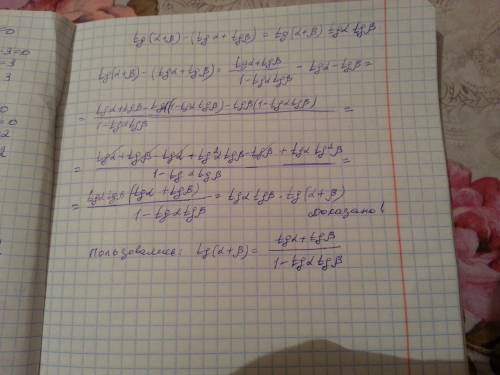 tg(α+β)-(tgα+tgβ)=tg(α+β)tgα tgβ
tg(α+β)-(tgα+tgβ)= (tgα+tgβ)/(1-tgα tgβ) -tgα-tgβ=
= (tgα+tgβ-tgα(1-tgα tgβ)-tgβ(1-tgα tgβ))/(1-tgα tgβ) =
= (tgα+tgβ-tgα+tg²α tgβ-tgβ+tgα tg²β)/(1-tgα tgβ) =
= (tgα tgβ(tgα+tgβ))/(1-tgα tgβ) = tgα tgβ·tg(α+β)
Доказано!
Пользовались: tg(α+β)= (tgα+tgβ)/(1-tgα tgβ)